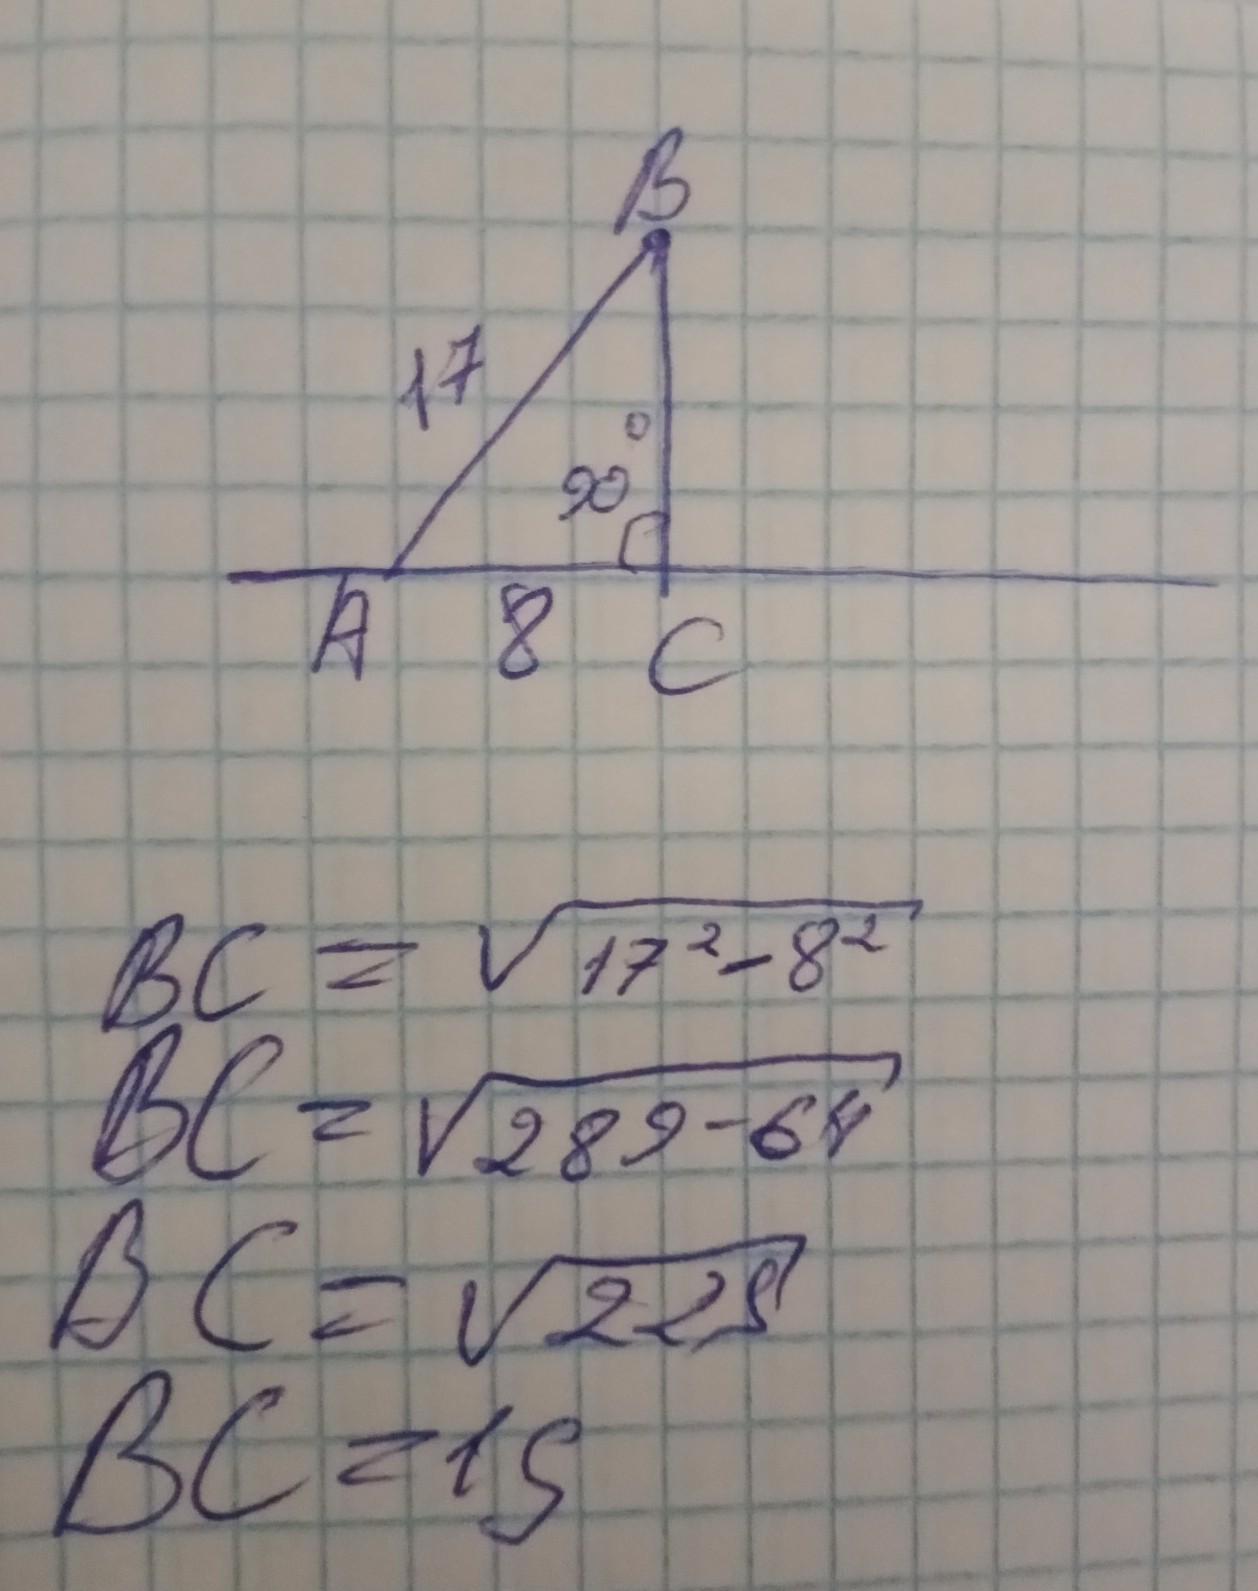 B
17
90°
A 8 C
BC = √17² - 8²
BC = √289 - 64
BC = √225
BC = 15